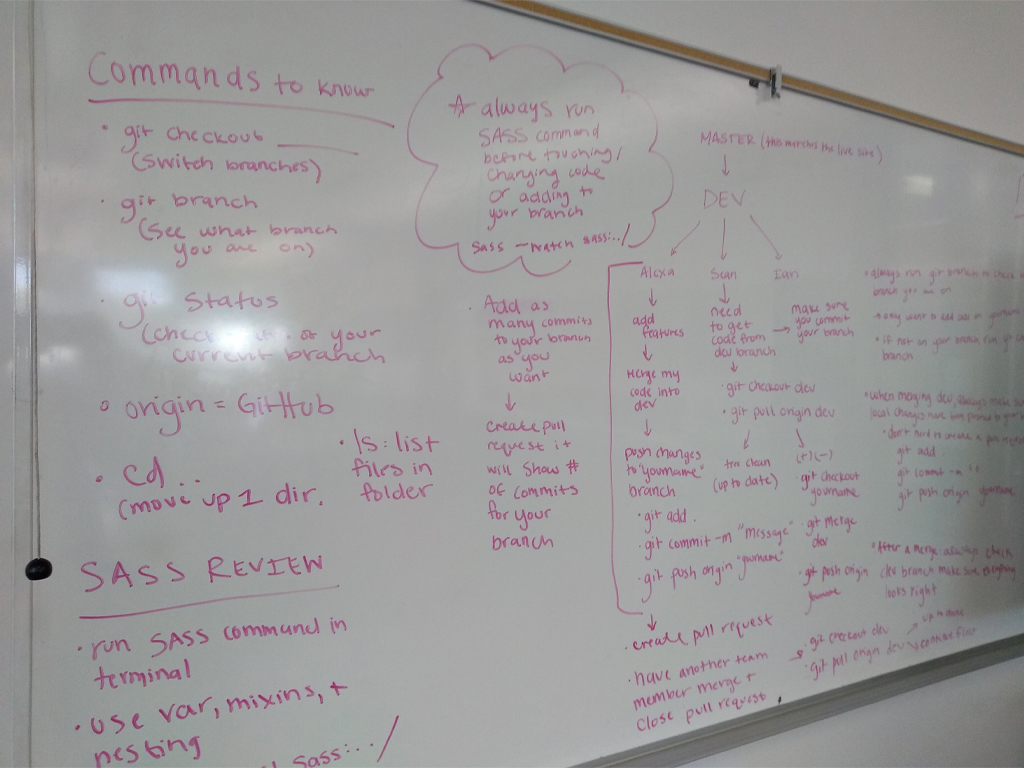 Commands to know
• git checkout ____
(switch branches)
• git branch
(see what branch
you are on)
• git status
(check of your
current branch
• origin = GitHub
• cd ..
(move up 1 dir.
• ls: list
files in
folder
SASS REVIEW
• run SASS command in
terminal
• use var, mixins, +
nesting
sass:../
☆ always run
SASS command
before touching/
changing code
or adding to
your branch
sass --watch sass:../
• Add as
many commits
to your branch
as you
want
↓
create pull
request it
will show #
of commits
for your
branch
MASTER (this matches the live site)
↓
DEV
Alexa
↓
add
features
↓
Merge my
code into
dev
↓
push changes
to "yourname"
branch
• git add .
• git commit -m "message"
• git push origin "yourname"
↓
• create pull request
• have another team
member merge +
close pull request
Sean
↓
need
to get
code from
dev branch
↓
• git checkout dev
• git pull origin dev
clean
(up to date)
(+)(-)
• git checkout
yourname
• git merge
dev
• git push origin
yourname
→ • git checkout dev
• git pull origin dev
Ian
→ make sure
you commit
your branch
• always run git branch to check
branch you are on
• only want to add
• if not on your branch run git
branch
• when merging dev, always make
local changes have been pushed to your
• don't need to create a pull request
git add .
git commit -m " "
git push origin yourname
• After a merge: always check
dev branch make sure everything
looks right